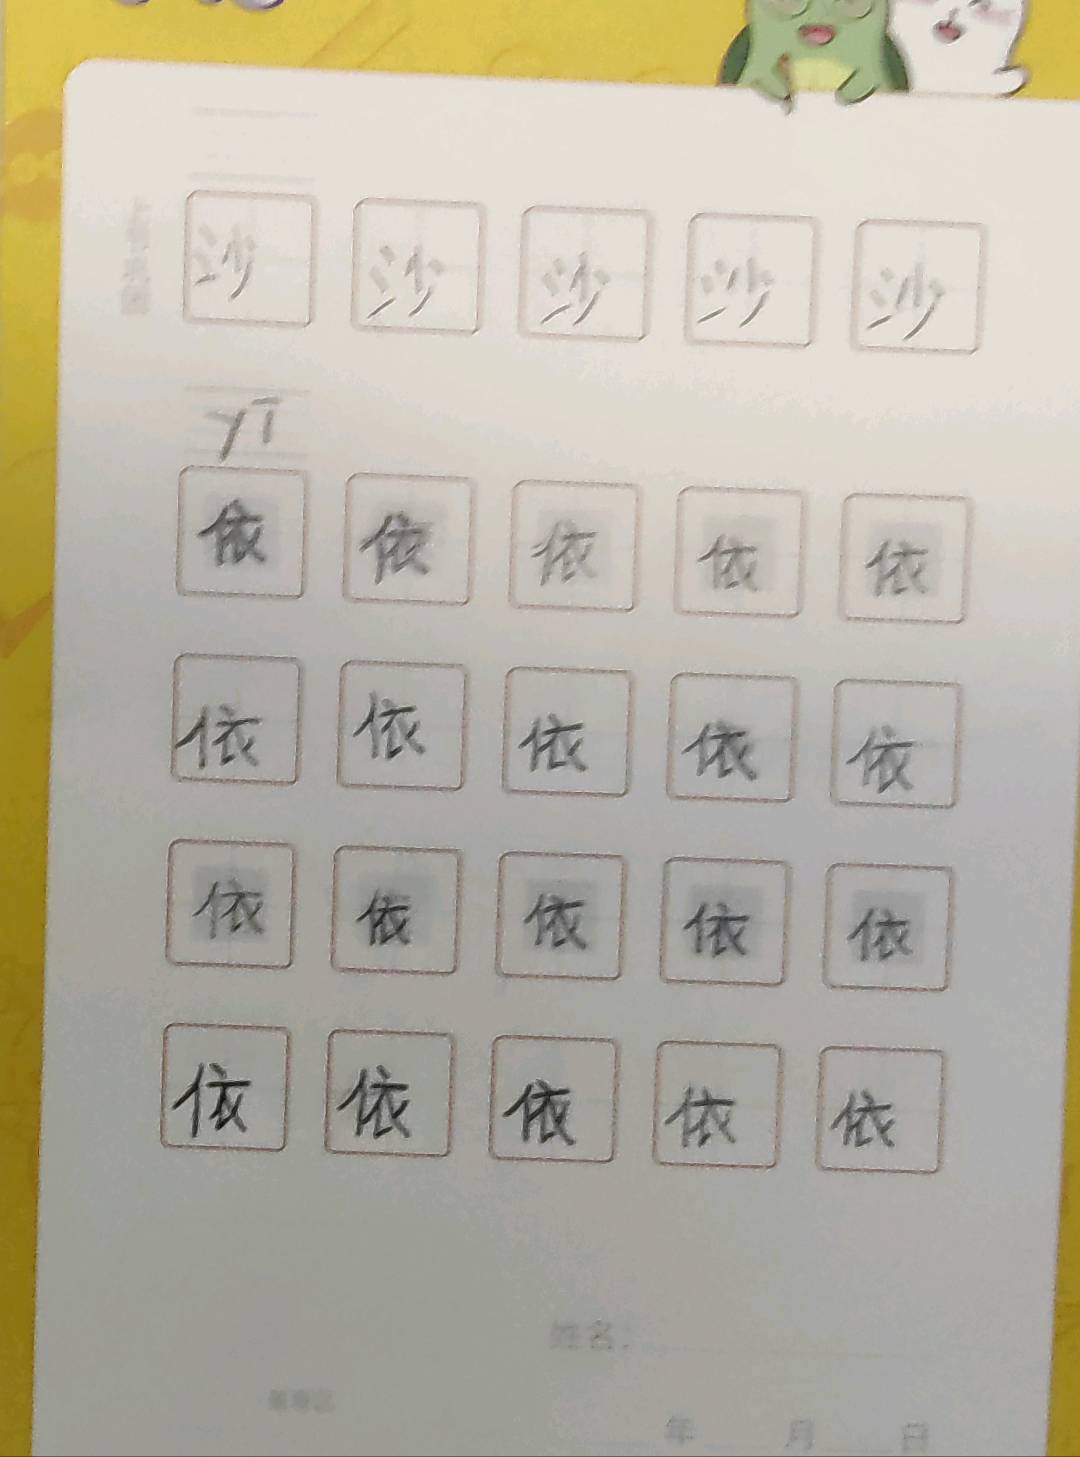 沙 沙 沙 沙 沙
yī
依 依 依 依 依
依 依 依 依 依
依 依 依 依 依
依 依 依 依 依
姓名:
年 月 日